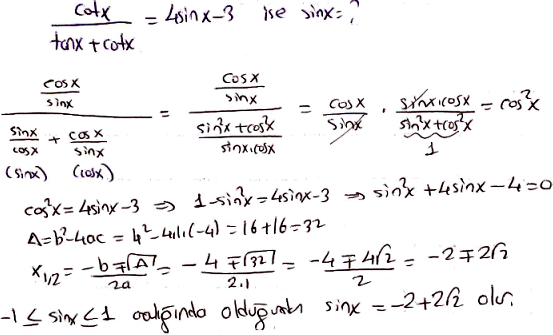 cotx / (tanx + cotx) = 4sinx-3 ise sinx=?
(cosx/sinx) / (sinx/cosx + cosx/sinx) = (cosx/sinx) / ((sin²x+cos²x)/(sinx.cosx)) = cosx/sinx . (sinx.cosx)/(sin²x+cos²x) = cos²x
(sinx) (cosx) 1
cos²x = 4sinx-3 ⇒ 1-sin²x = 4sinx-3 ⇒ sin²x + 4sinx - 4 = 0
Δ = b²-4ac = 4²-4.1.(-4) = 16+16 = 32
x₁/₂ = (-b∓√Δ)/2a = (-4∓√32)/2.1 = (-4∓4√2)/2 = -2∓2√2
-1 ≤ sinx ≤ 1 aralığında olduğundan sinx = -2+2√2 olur.